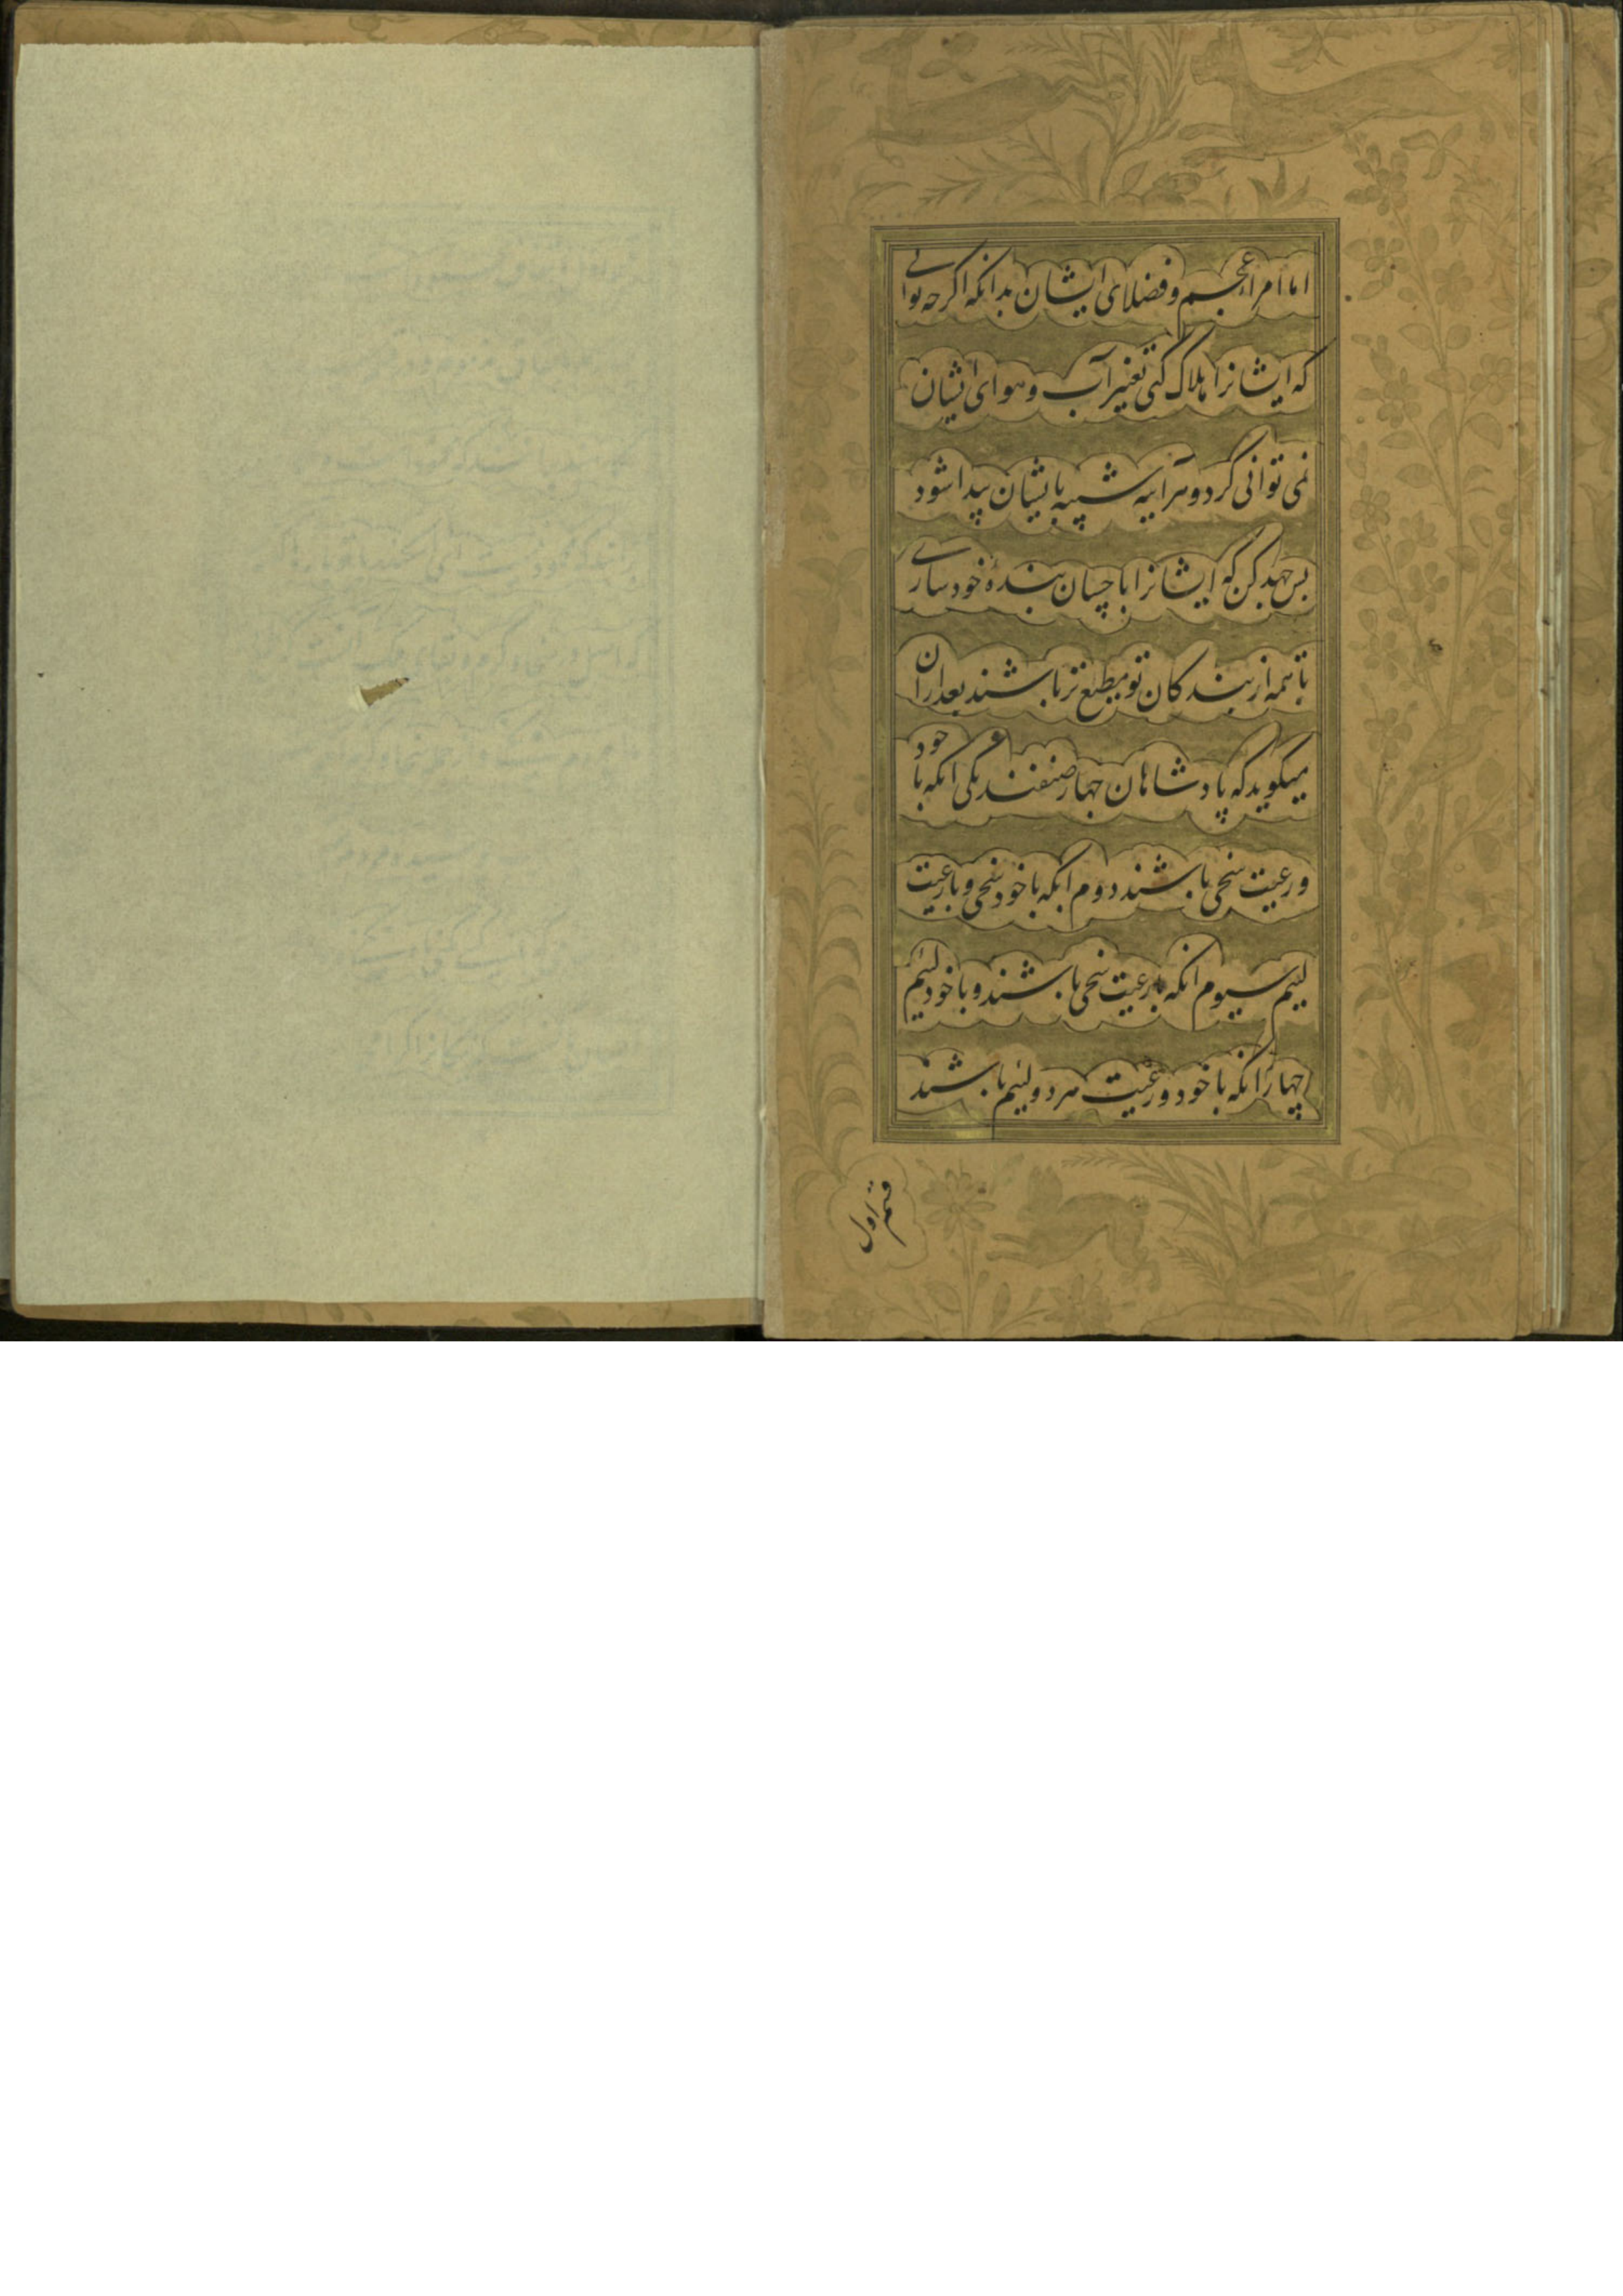 اما امراء عجم و فضلای ایشان بدانکه اگرچه توانی
که ایشانرا هلاک کنی تغییر آب و هوای ایشان
نمی توانی کرد و هرآینه شبیه بایشان پیدا شود
پس جهد کن که ایشانرا باحسان بندهٔ خود سازی
تا همه از بندکان تو مطیع تر باشند بعد ازان
میکوید که پادشاهان چهار صنفند یکی انکه با خود
و رعیت سخی باشند دوم انکه با خود سخی و با رعیت
لئیم سیوم انکه با رعیت سخی باشند و با خود لئیم
چهارم انکه با خود و رعیت هر دو لئیم باشند
قسم اول